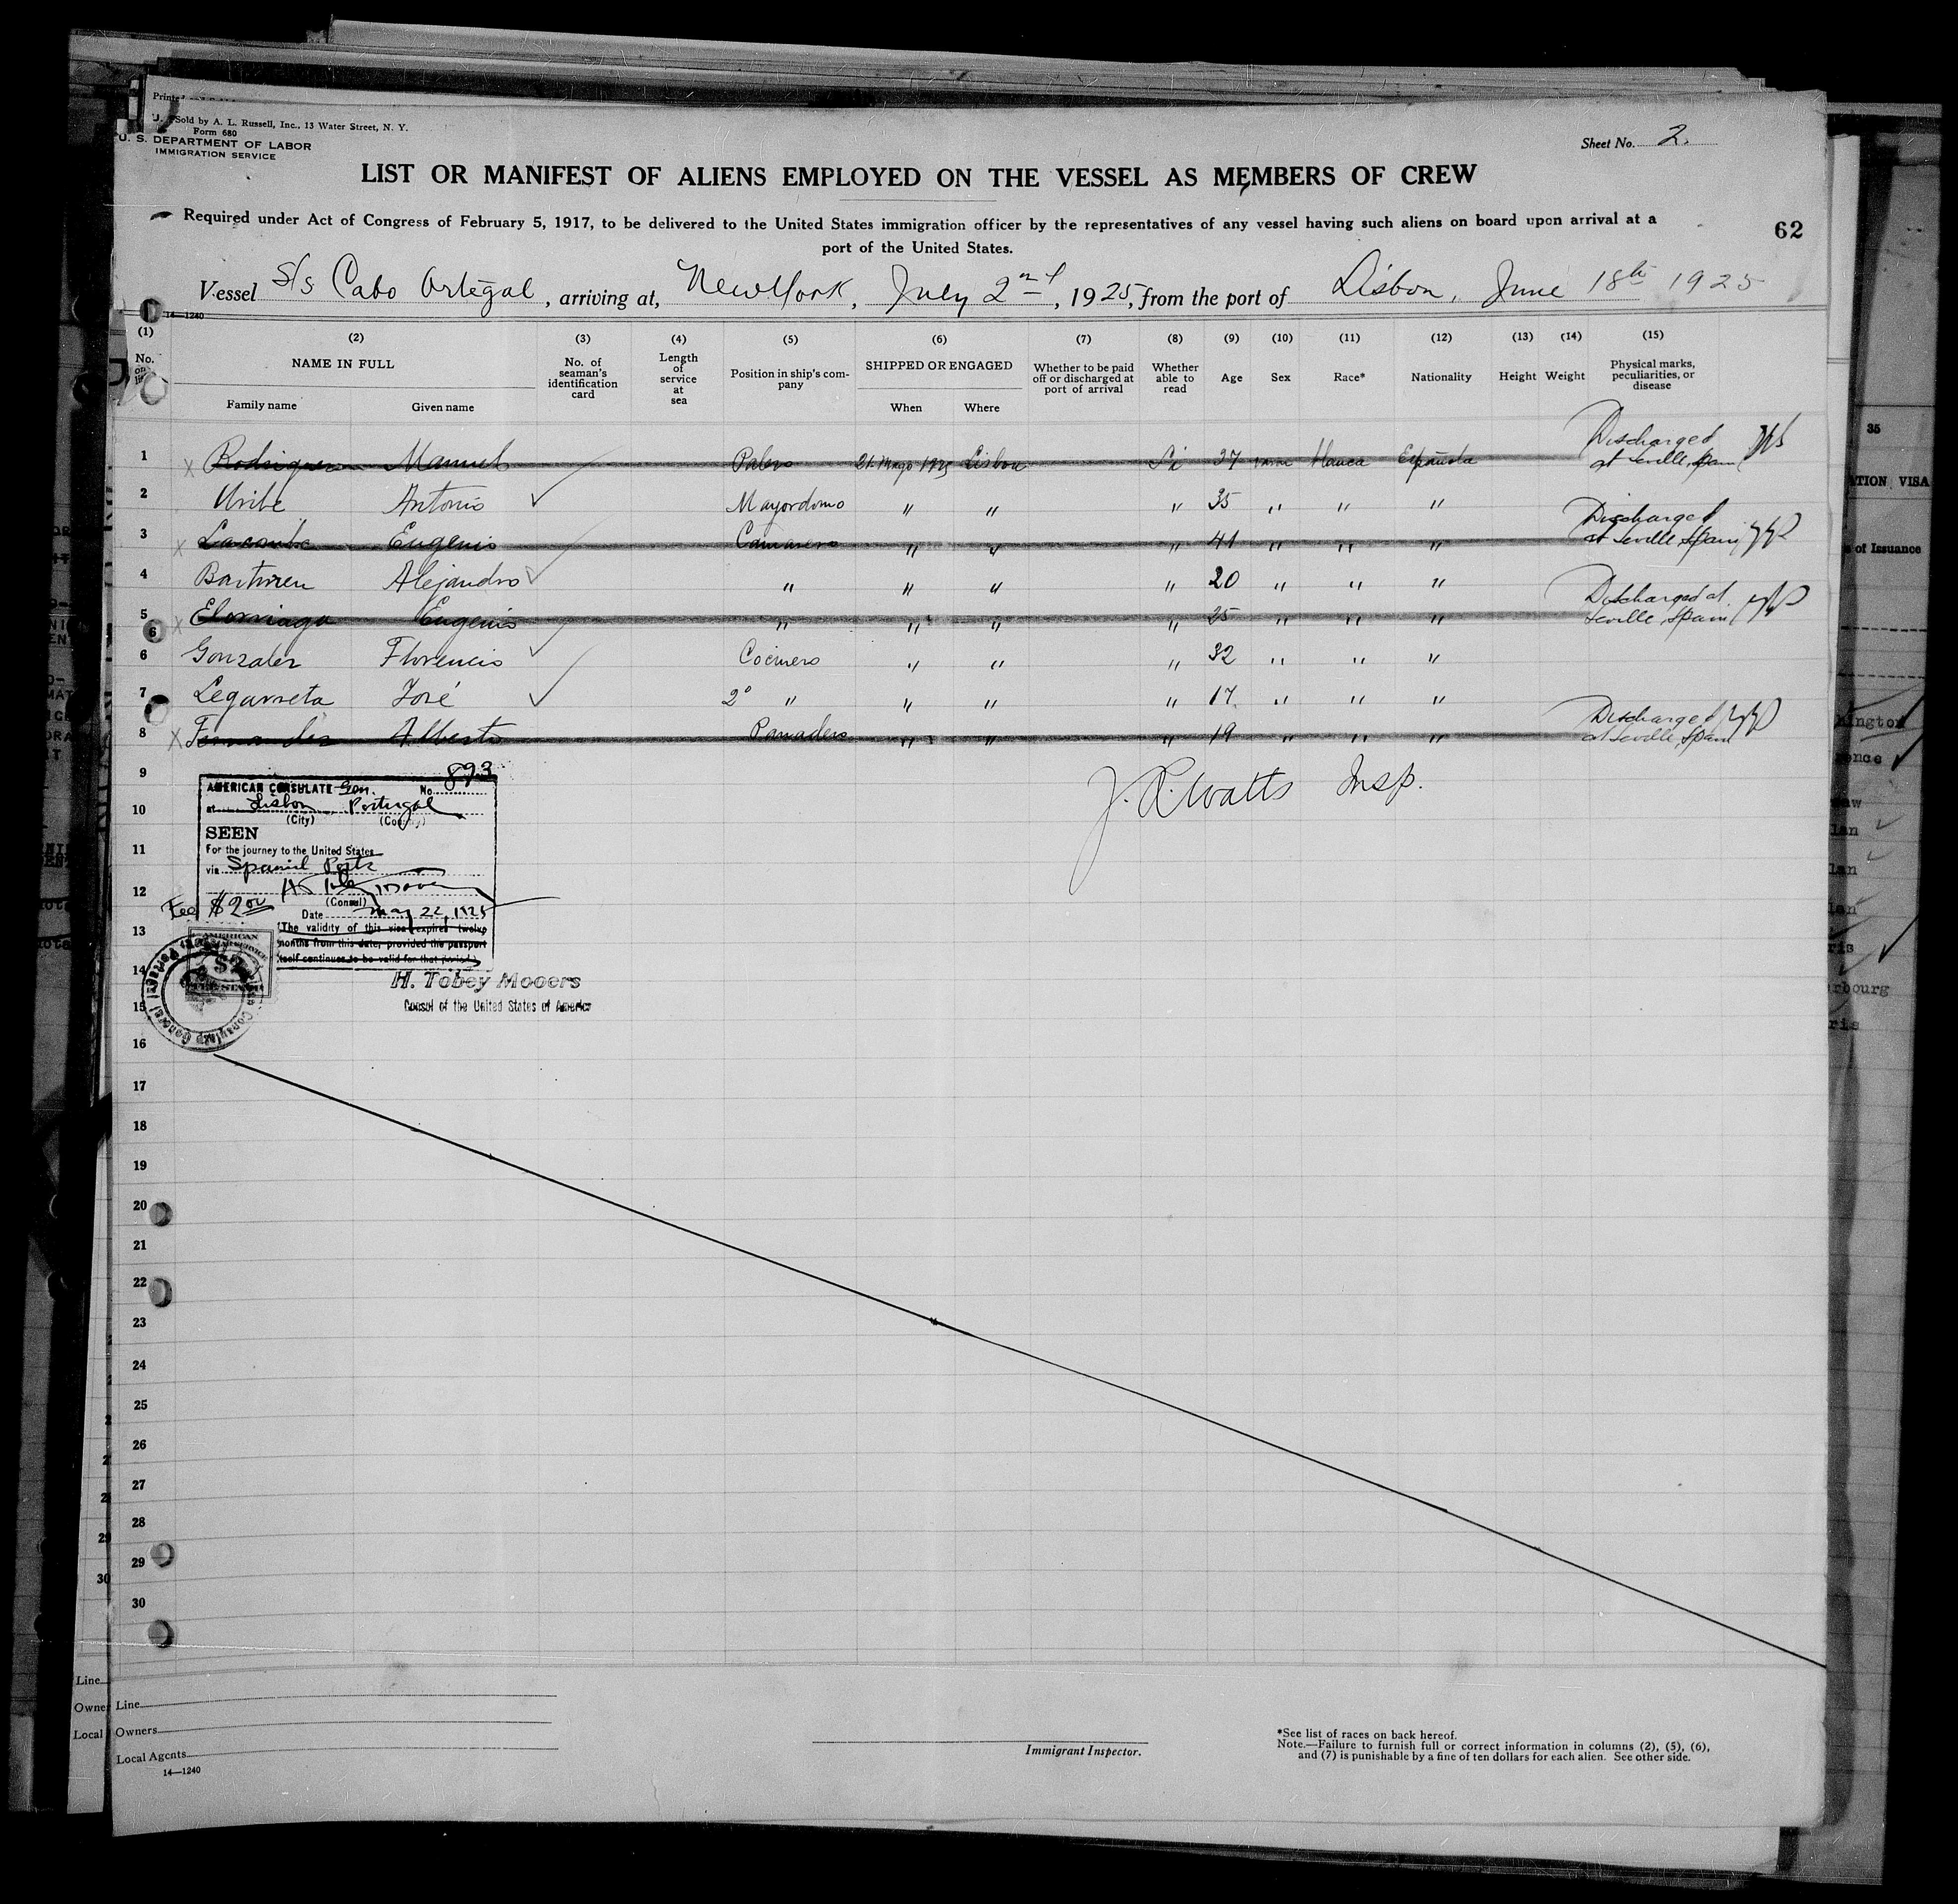 Sold by A. L. Russell, Inc., 13 Water Street, N. Y.
Form 680
U. S. DEPARTMENT OF LABOR
IMMIGRATION SERVICE
Sheet No. 2.
LIST OR MANIFEST OF ALIENS EMPLOYED ON THE VESSEL AS MEMBERS OF CREW
Required under Act of Congress of February 5, 1917, to be delivered to the United States immigration officer by the representatives of any vessel having such aliens on board upon arrival at a
port of the United States.
62
Vessel S/s Cabo Ortegal, arriving at, New York, July 2nd, 1925, from the port of Lisbon, June 18th 1925
14—1240
(1) (2) (3) (4) (5) (6) (7) (8) (9) (10) (11) (12) (13) (14) (15)
No. on list
NAME IN FULL
Family name
Given name
No. of seaman's identification card
Length of service at sea
Position in ship's company
SHIPPED OR ENGAGED
When
Where
Whether to be paid off or discharged at port of arrival
Whether able to read
Age
Sex
Race*
Nationality
Height
Weight
Physical marks, peculiarities, or disease
1 x Rodriguez Manuel Palero 21 Mayo 1925 Lisbon Si 37 blanca Española Discharged at Seville, Spain
2 Uribe Antonio Mayordomo " " " 35 " " "
3 x Lacomba Eugenio Camarero " " " 41 " " " Discharged at Seville, Spain
4 Alejandro " " " " 20 " " "
5 x Elorriaga Eugenio " " " " 25 " " " Discharged at Seville, Spain
6 Gonzalez Florencio Cocinero " " " 32 " " "
7 Legarreta José 2° " " " " 17 " " "
8 x Fernandez Alberto Panadero " " " 19 " " " Discharged at Seville, Spain
J. R. Watts Insp.
9
10
11
12
13
14
15
16
17
18
19
20
21
22
23
24
25
26
27
28
29
30
AMERICAN CONSULATE Gen. No. 893
at Lisbon, Portugal
(City) (Country)
SEEN
For the journey to the United States
via Spanish Ports
(Consul)
Fee $2.00
Date May 22, 1925
(The validity of this visa expires twelve
months from this date, provided the passport
itself continues to be valid for that period.)
H. Tobey Mooers
Consul of the United States of America
Line
Owners
Local Agents
14—1240
Immigrant Inspector.
*See list of races on back hereof.
Note.—Failure to furnish full or correct information in columns (2), (5), (6),
and (7) is punishable by a fine of ten dollars for each alien. See other side.